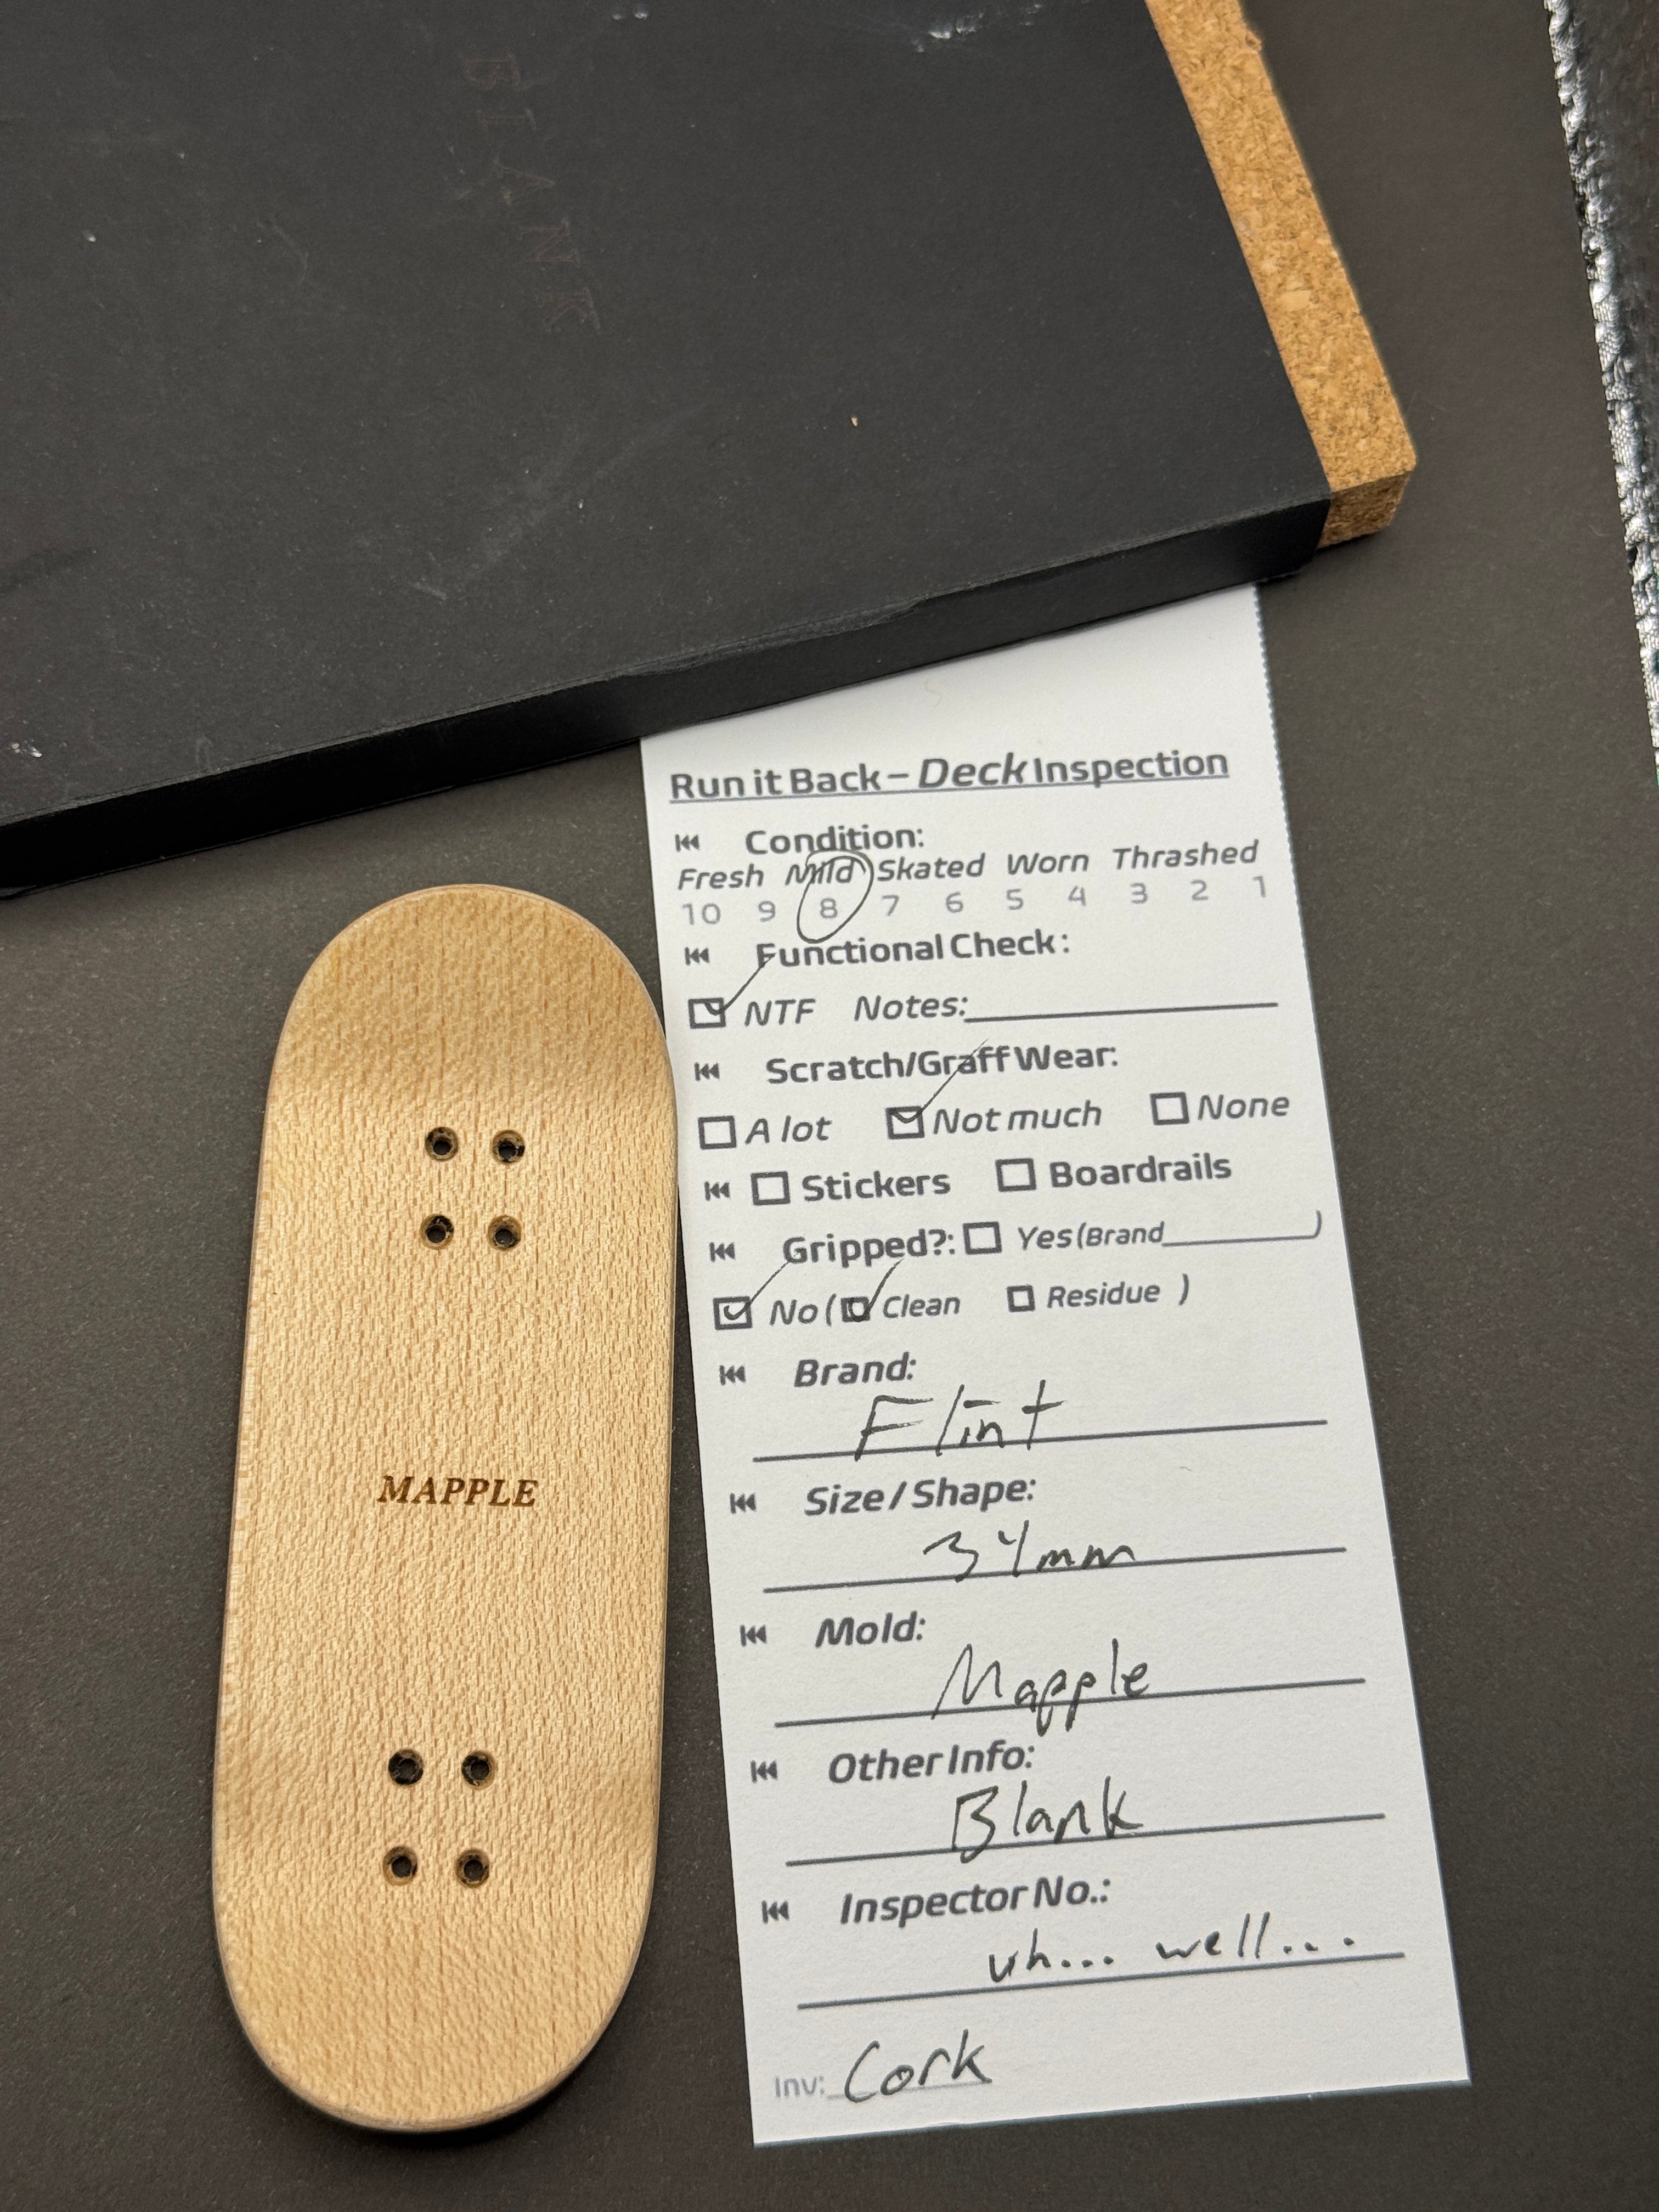 BLANK
Run it Back - Deck Inspection
Condition:
Fresh Mild Skated Worn Thrashed
10 9 8 7 6 5 4 3 2 1
Functional Check:
NTF Notes:
Scratch/Graff Wear:
A lot Not much None
Stickers Boardrails
Gripped?: Yes (Brand )
No ( Clean Residue )
Brand:
Flint
Size / Shape:
34mm
Mold:
Mapple
Other Info:
Blank
Inspector No.:
uh... well...
Inv: Cork
MAPPLE